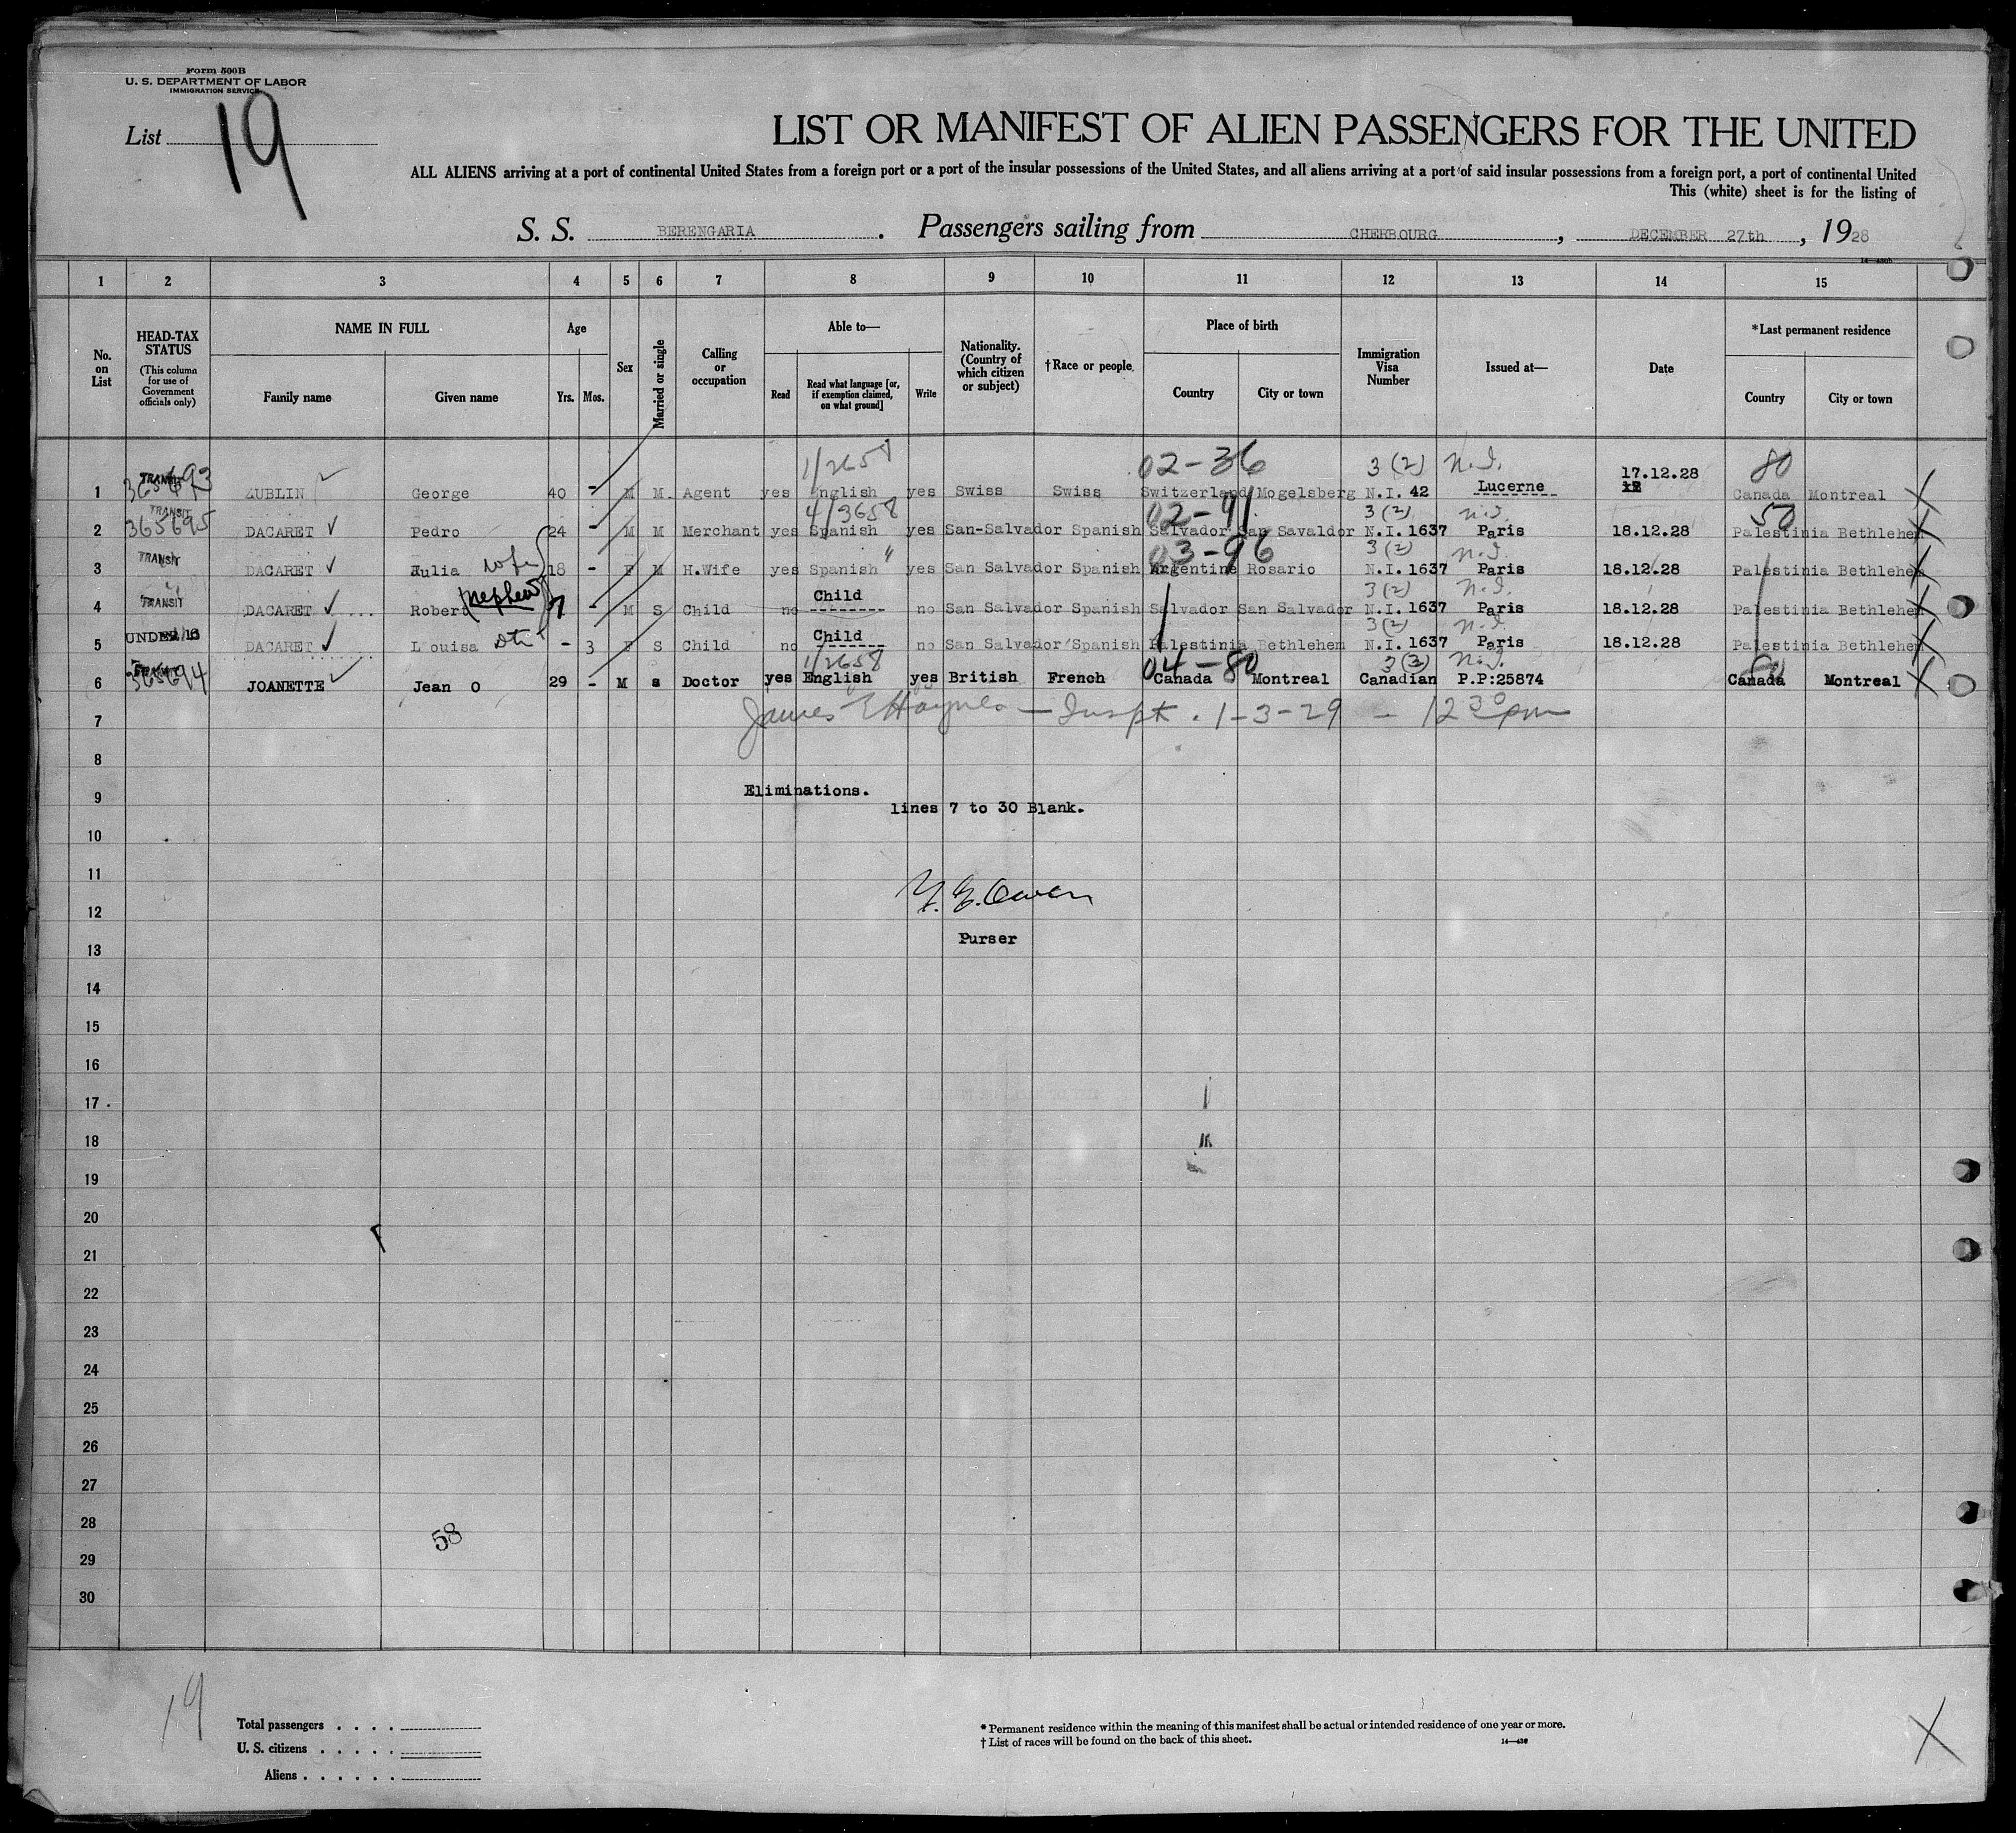 Form 500B
U. S. DEPARTMENT OF LABOR
IMMIGRATION SERVICE
List 19
LIST OR MANIFEST OF ALIEN PASSENGERS FOR THE UNITED
ALL ALIENS arriving at a port of continental United States from a foreign port or a port of the insular possessions of the United States, and all aliens arriving at a port of said insular possessions from a foreign port, a port of continental United
This (white) sheet is for the listing of
S. S. BERENGARIA. Passengers sailing from CHERBOURG, DECEMBER 27th, 1928
1 2 3 4 5 6 7 8 9 10 11 12 13 14 15
No. on List
HEAD-TAX STATUS
(This column for use of Government officials only)
NAME IN FULL
Family name
Given name
Age
Yrs. Mos.
Sex
Married or single
Calling or occupation
Able to—
Read
Read what language [or, if exemption claimed, on what ground]
Write
Nationality. (Country of which citizen or subject)
†Race or people
Place of birth
Country
City or town
Immigration Visa Number
Issued at—
Date
*Last permanent residence
Country
City or town
1/2658 02-36 3(2) N.I. 80
1 TRANSIT 365693 ZUBLIN George 40 - M M. Agent yes English yes Swiss Swiss Switzerland Mogelsberg N.I. 42 Lucerne 17.12.28 Canada Montreal X
4/3658 02-91 3(2) N.I. 50
2 TRANSIT 365695 DACARET Pedro 24 - M M Merchant yes Spanish yes San-Salvador Spanish Salvador San Savaldor N.I. 1637 Paris 18.12.28 Palestinia Bethlehem X
03-96 3(2) N.I.
3 TRANSIT DACARET Julia wife 18 - F M H.Wife yes Spanish " yes San Salvador Spanish Argentine Rosario N.I. 1637 Paris 18.12.28 Palestinia Bethlehem X
3(2) N.I.
4 TRANSIT DACARET Robert nephew 7 - M S Child no Child no San Salvador Spanish Salvador San Salvador N.I. 1637 Paris 18.12.28 Palestinia Bethlehem X
3(2) N.I.
5 UNDER 16 DACARET Louisa - 3 F S Child no Child no San Salvador Spanish Palestinia Bethlehem N.I. 1637 Paris 18.12.28 Palestinia Bethlehem X
1/2658 04-80 3(3) N.I.
6 365694 JOANETTE Jean O 29 - M s Doctor yes English yes British French Canada Montreal Canadian P.P:25874 Canada Montreal X
7 James E Haynes - Inspt. 1-3-29 - 12 30 pm
8
9 Eliminations.
lines 7 to 30 Blank.
10
11
12 Owen
13 Purser
14
15
16
17
18
19
20
21
22
23
24
25
26
27
28
58
29
30
19
Total passengers
U. S. citizens
Aliens
* Permanent residence within the meaning of this manifest shall be actual or intended residence of one year or more.
† List of races will be found on the back of this sheet.
X